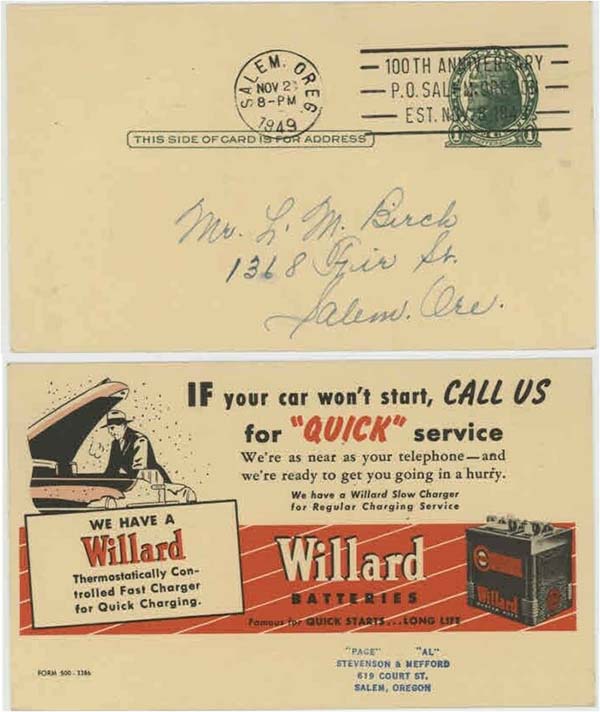 SALEM, OREG
NOV 2
8-PM
1949
100TH ANNIVERSARY
P.O. SALEM, OREGON
EST. NOV. 8, 184
THIS SIDE OF CARD IS FOR ADDRESS
Mr. L. M. Birch
1368 Fir St.
Salem. Ore.
IF your car won't start, CALL US
for "QUICK" service
We're as near as your telephone—and
we're ready to get you going in a hurry.
We have a Willard Slow Charger
for Regular Charging Service
WE HAVE A
Willard
Thermostatically Con-
trolled Fast Charger
for Quick Charging.
Willard
BATTERIES
Famous for QUICK STARTS...LONG LIFE
Willard
"PAGE" "AL"
STEVENSON & MEFFORD
619 COURT ST.
SALEM, OREGON
FORM 500-3386